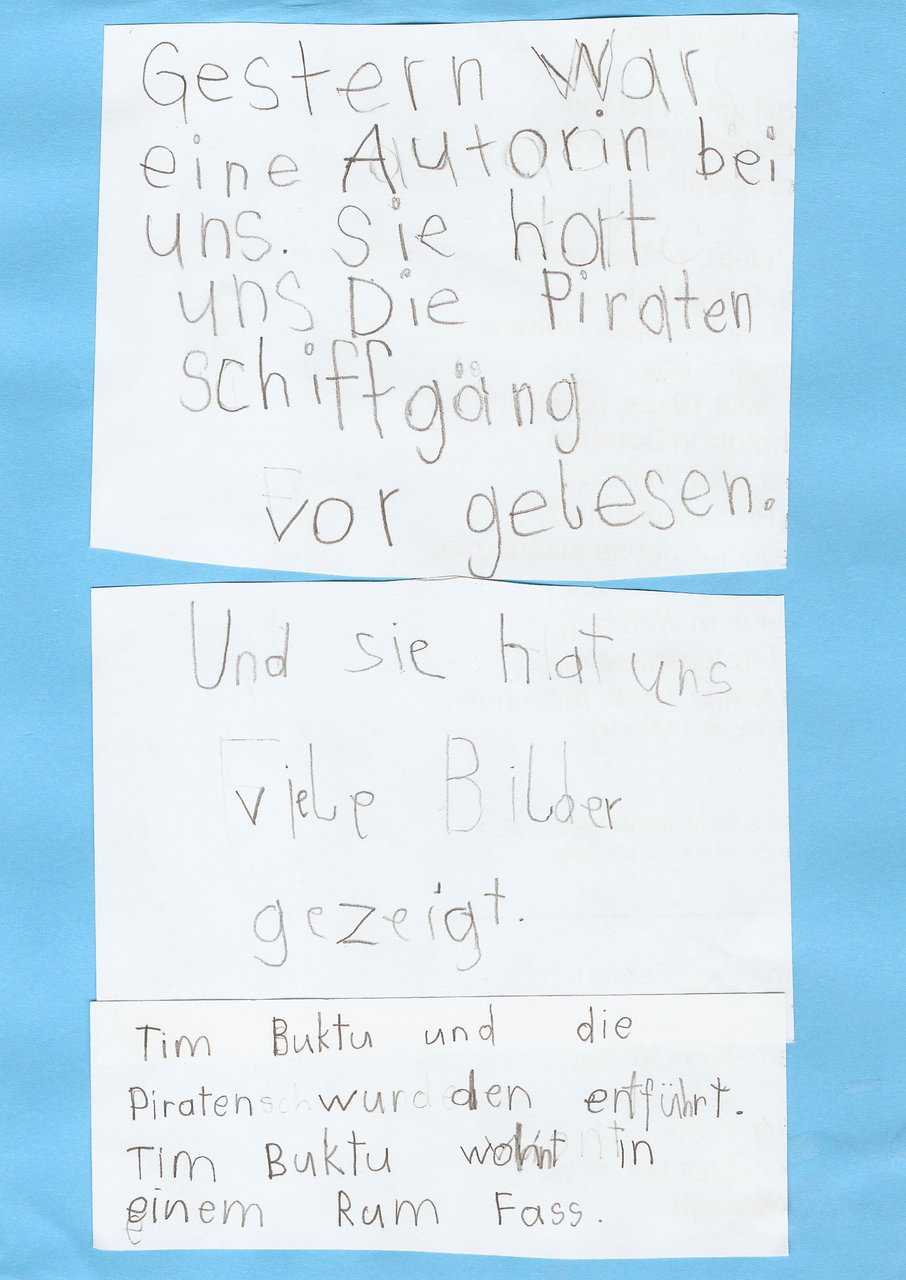 Gestern War
eine Autorin bei
uns. Sie hat
uns Die Piraten
schiffgäng
vor gelesen.
Und sie hat uns
viele Bilder
gezeigt.
Tim Buktu und die
Piraten wurden entführt.
Tim Buktu wohnt in
einem Rum Fass.